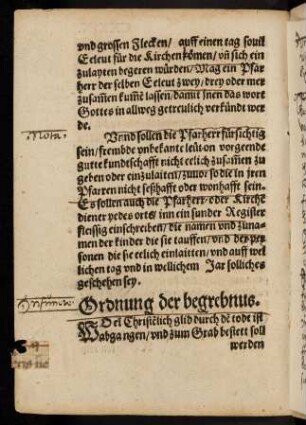 vnd grossen Flecken/ auff einen tag souil
Eeleut für die Kirchen kömen/ vñ sich ein
zulayten begeren würden/ Mag ein Pfar
herr der selben Eeleut zwey/ drey oder mer
zusamen kumē lassen/ damit jnen das wort
Gottes in allweg getreulich verkündt wer
de.
Nota.
Vnnd sollen die Pfarherr fürsichtig
sein/ frembde vnbekante leut on vorgeende
gutte kundtschafft nicht eelich zusamē zu
geben oder einzulaiten/ zuuor so die in jren
Pfarren nicht seßhafft oder wonhafft sein.
Es sollen auch die Pfarherr oder Kirchē
diener yedes orts/ inn ein sunder Register
fleissig einschreiben/ die namen vnd zuna-
men der kinder die sie tauffen/ vnd der per
sonen die sie eelich einlaitten/ vnd auff wel
lichen tag vnd in wellichem Jar solliches
geschehen sey.
Ordnung der begrebnus.
Wo ei Christēlich glid durch dē tode ist
abgangen/ vnd zum Grab bestett soll
werden